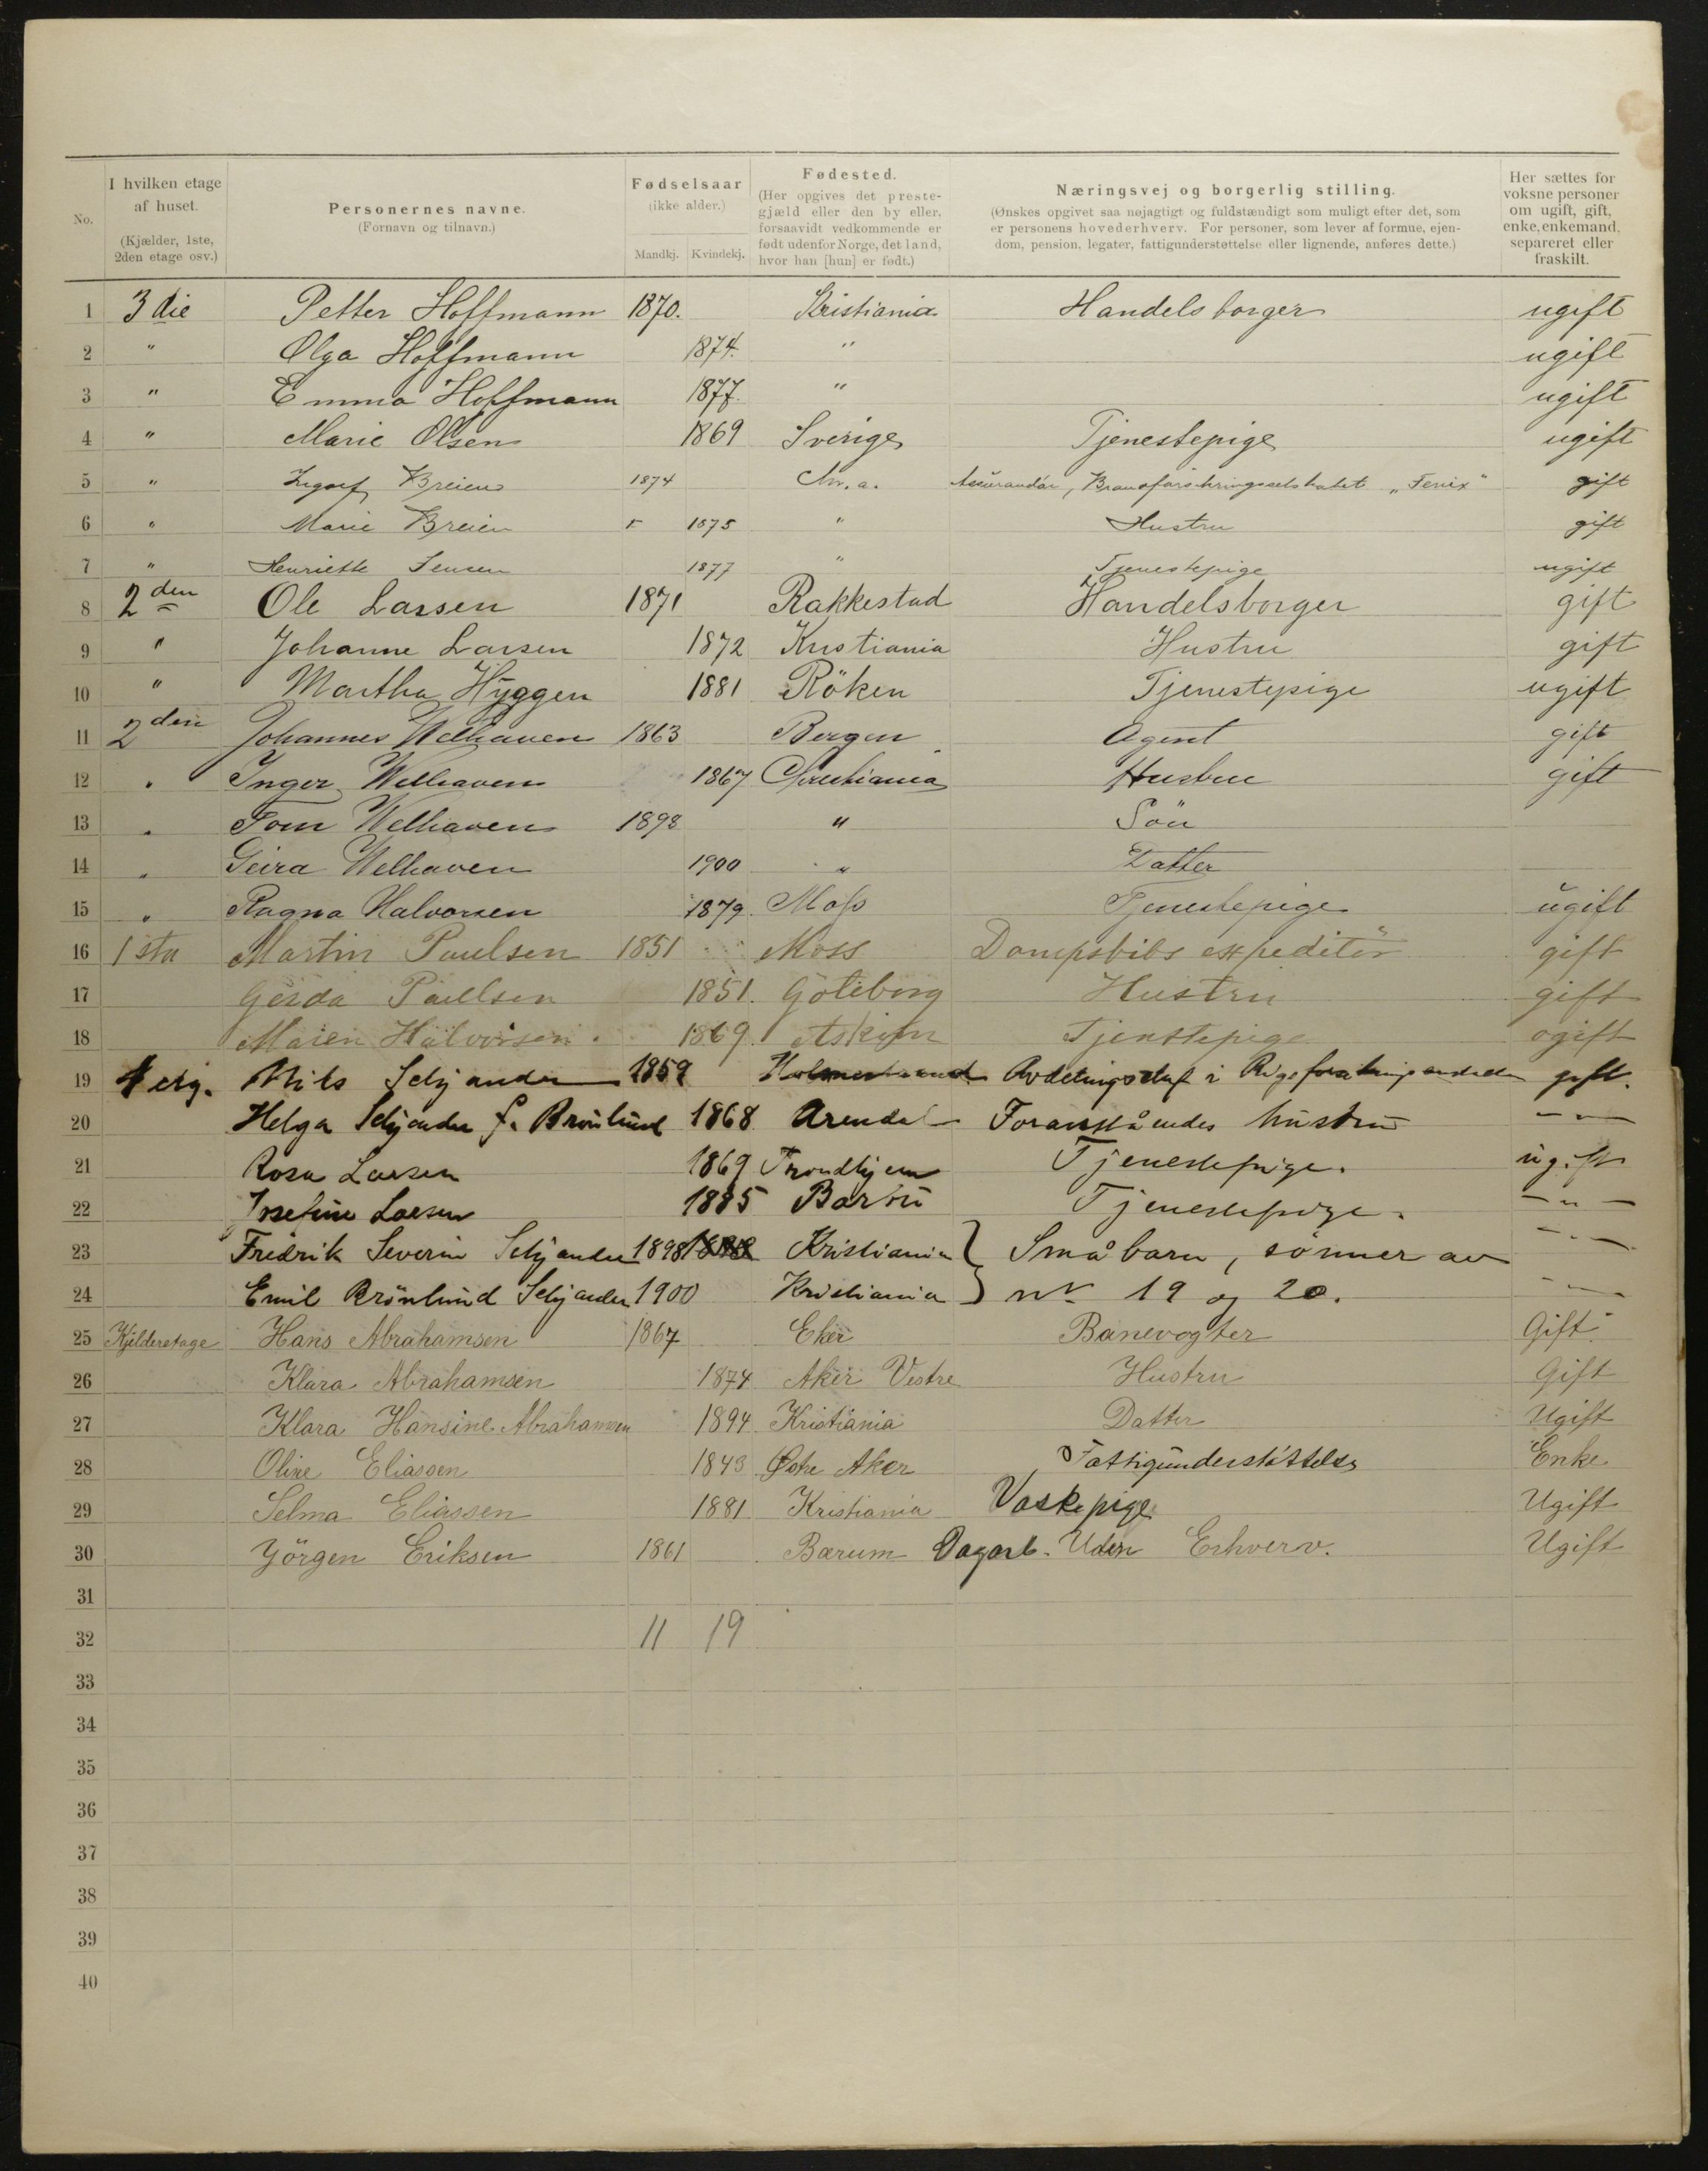 No.
I hvilken etage
af huset.
(Kjælder, 1ste,
2den etage osv.)
Personernes navne.
(Fornavn og tilnavn.)
Fødselsaar
(ikke alder.)
Mandkj. Kvindekj.
Fødested.
(Her opgives det preste-
gjæld eller den by eller,
forsaavidt vedkommende er
født udenfor Norge, det land,
hvor han [hun] er født.)
Næringsvej og borgerlig stilling.
(Ønskes opgivet saa nøjagtigt og fuldstændigt som muligt efter det, som
er personens hovederhverv. For personer, som lever af formue, ejen-
dom, pension, legater, fattigunderstøttelse eller lignende, anføres dette.)
Her sættes for
voksne personer
om ugift, gift,
enke, enkemand,
separeret eller
fraskilt.
1 3die Petter Hoffmann 1870. Kristiania Handelsborger ugift
2 " Olga Hoffmann 1874. " ugift
3 " Emma Hoffmann 1877. " ugift
4 " Marie Olsen 1869 Sverige Tjenestepige ugift
5 " Breien 1874 Chr.a. "Fenix" gift
6 " Marie Breien 1875 " Hustru gift
7 " Henriette Jensen 1877 " Tjenestepige ugift
8 2den Ole Larsen 1871 Rakkestad Handelsborger gift
9 " Johanne Larsen 1872 Kristiania Hustru gift
10 " Martha Hyggen 1881 Röken Tjenestepige ugift
11 2den Johannes Welhaven 1863 Bergen Agent gift
12 " Inger Welhaven 1867 Christiania Hustru gift
13 " Tom Welhaven 1898 " Sön
14 " Welhaven 1900 " Datter
15 " Ragna Halvorsen 1879. Moss Tjenestepige ugift
16 1ste Martin Paulsen 1851 Moss Dampsbibs expeditör gift
17 Gerda Paulsen 1851. Göteborg Hustru gift
18 Maren Halvorsen. 1869. Askim Tjenstepige ogift
19 1 etg. Nils Schjander 1859 Holmestrand gift.
20 Helga Schjander f. Brönlund 1868 Arendal Foranstående hustru - " -
21 Rosa Larsen 1869 Trondhjem Tjenestepige. ugift
22 Josefine Larsen 1885 Tjenestepige. - " -
23 Fredrik Severin Schjander 1898 Kristiania } Småbarn, sönner av - " -
24 Emil Brönlund Schjander 1900 Kristiania } nr 19 og 20. - " -
25 Kjelderetage Hans Abrahamsen 1867 Eker Banevogter Gift.
26 Klara Abrahamsen 1874 Aker Vestre Hustru Gift
27 Klara Hansine Abrahamsen 1894 Kristiania Datter Ugift
28 Oline Eliassen 1843 Østre Aker Fattigunderstöttelse Enke
29 Selma Eliassen 1881 Kristiania Vaskepige Ugift
30 Jörgen Eriksen 1861 Bærum Dagarb. Uden Erhverv. Ugift
31
32 11 19
33
34
35
36
37
38
39
40